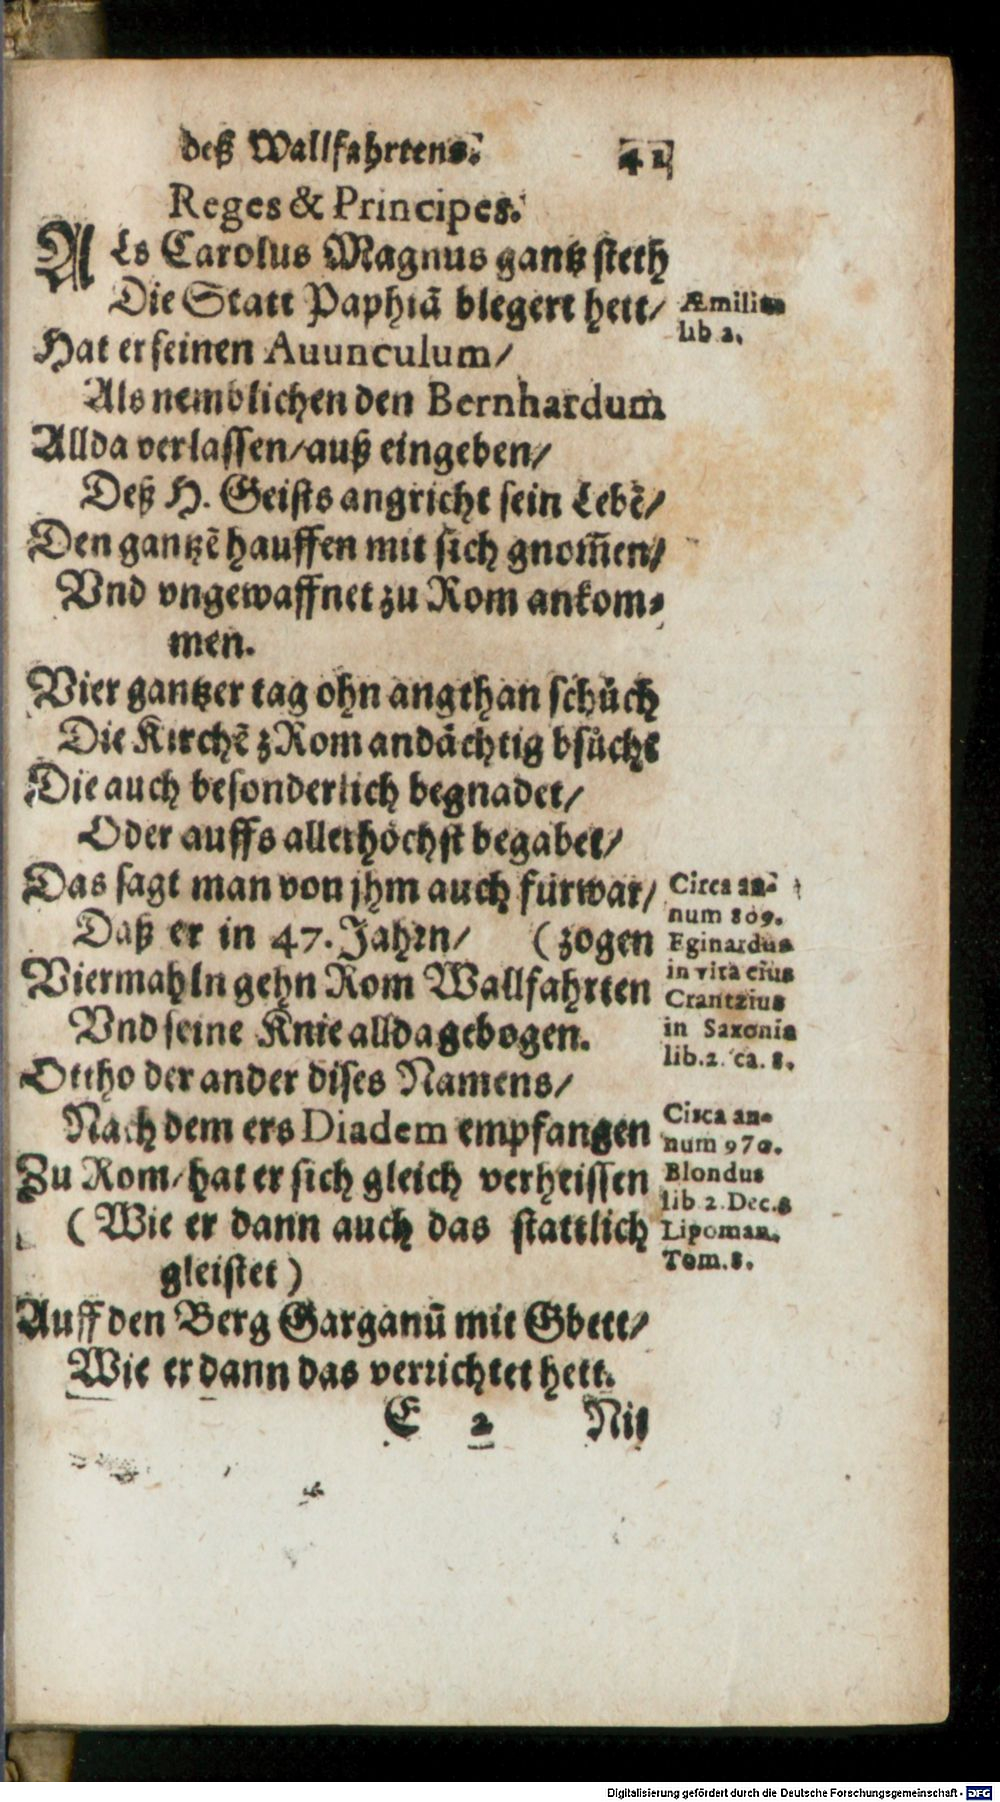 deß Wallfahrtens. 41
Reges & Principes.
Als Carolus Magnus gantz steth
Die Statt Paphiā blegert hett/
Æmilius
lib 2.
Hat er seinen Auunculum/
Als nemblichen den Bernhardum
Allda verlassen/auß eingeben/
Deß H. Geists angricht sein Lebē/
Den gantzē hauffen mit sich gnom̄en/
Vnd vngewaffnet zu Rom ankom-
men.
Vier gantzer tag ohn angthan schůch
Die Kirchē z Rom andächtig bsůcht
Die auch besonderlich begnadet/
Oder auffs allerhöchst begabet/
Das sagt man von jhm auch fürwar/
Daß er in 47. Jahrn/ (zogen
Viermahln gehn Rom Wallfahrten
Vnd seine Knie allda gebogen.
Circa an-
num 809.
Eginardus
in vita eius
Crantzius
in Saxonia
lib.2. ca. 8.
Ottho der ander dises Namens/
Nach dem ers Diadem empfangen
Zu Rom/hat er sich gleich verheissen
(Wie er dann auch das stattlich
gleistet)
Circa an-
num 970.
Blondus
lib 2.Dec.
Lipoman.
Tom.8.
Auff den Berg Garganū mit Gbett/
Wie er dann das verrichtet hett.
E 2 Nit
Digitalisierung gefördert durch die Deutsche Forschungsgemeinschaft - DFG